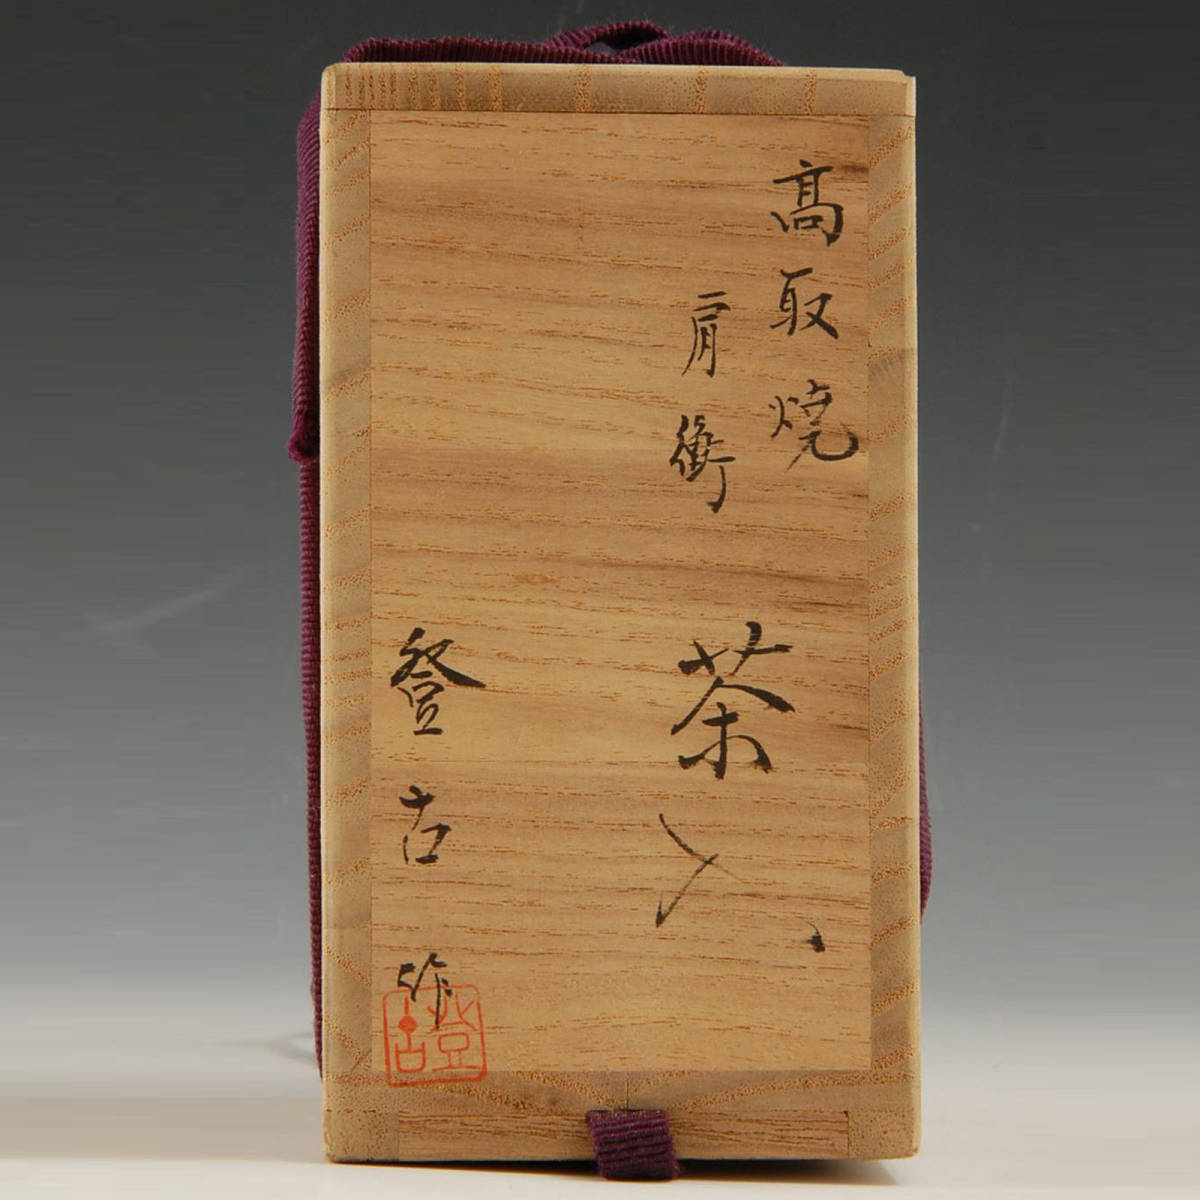 髙取焼
肩衝
茶入
登古作
登古